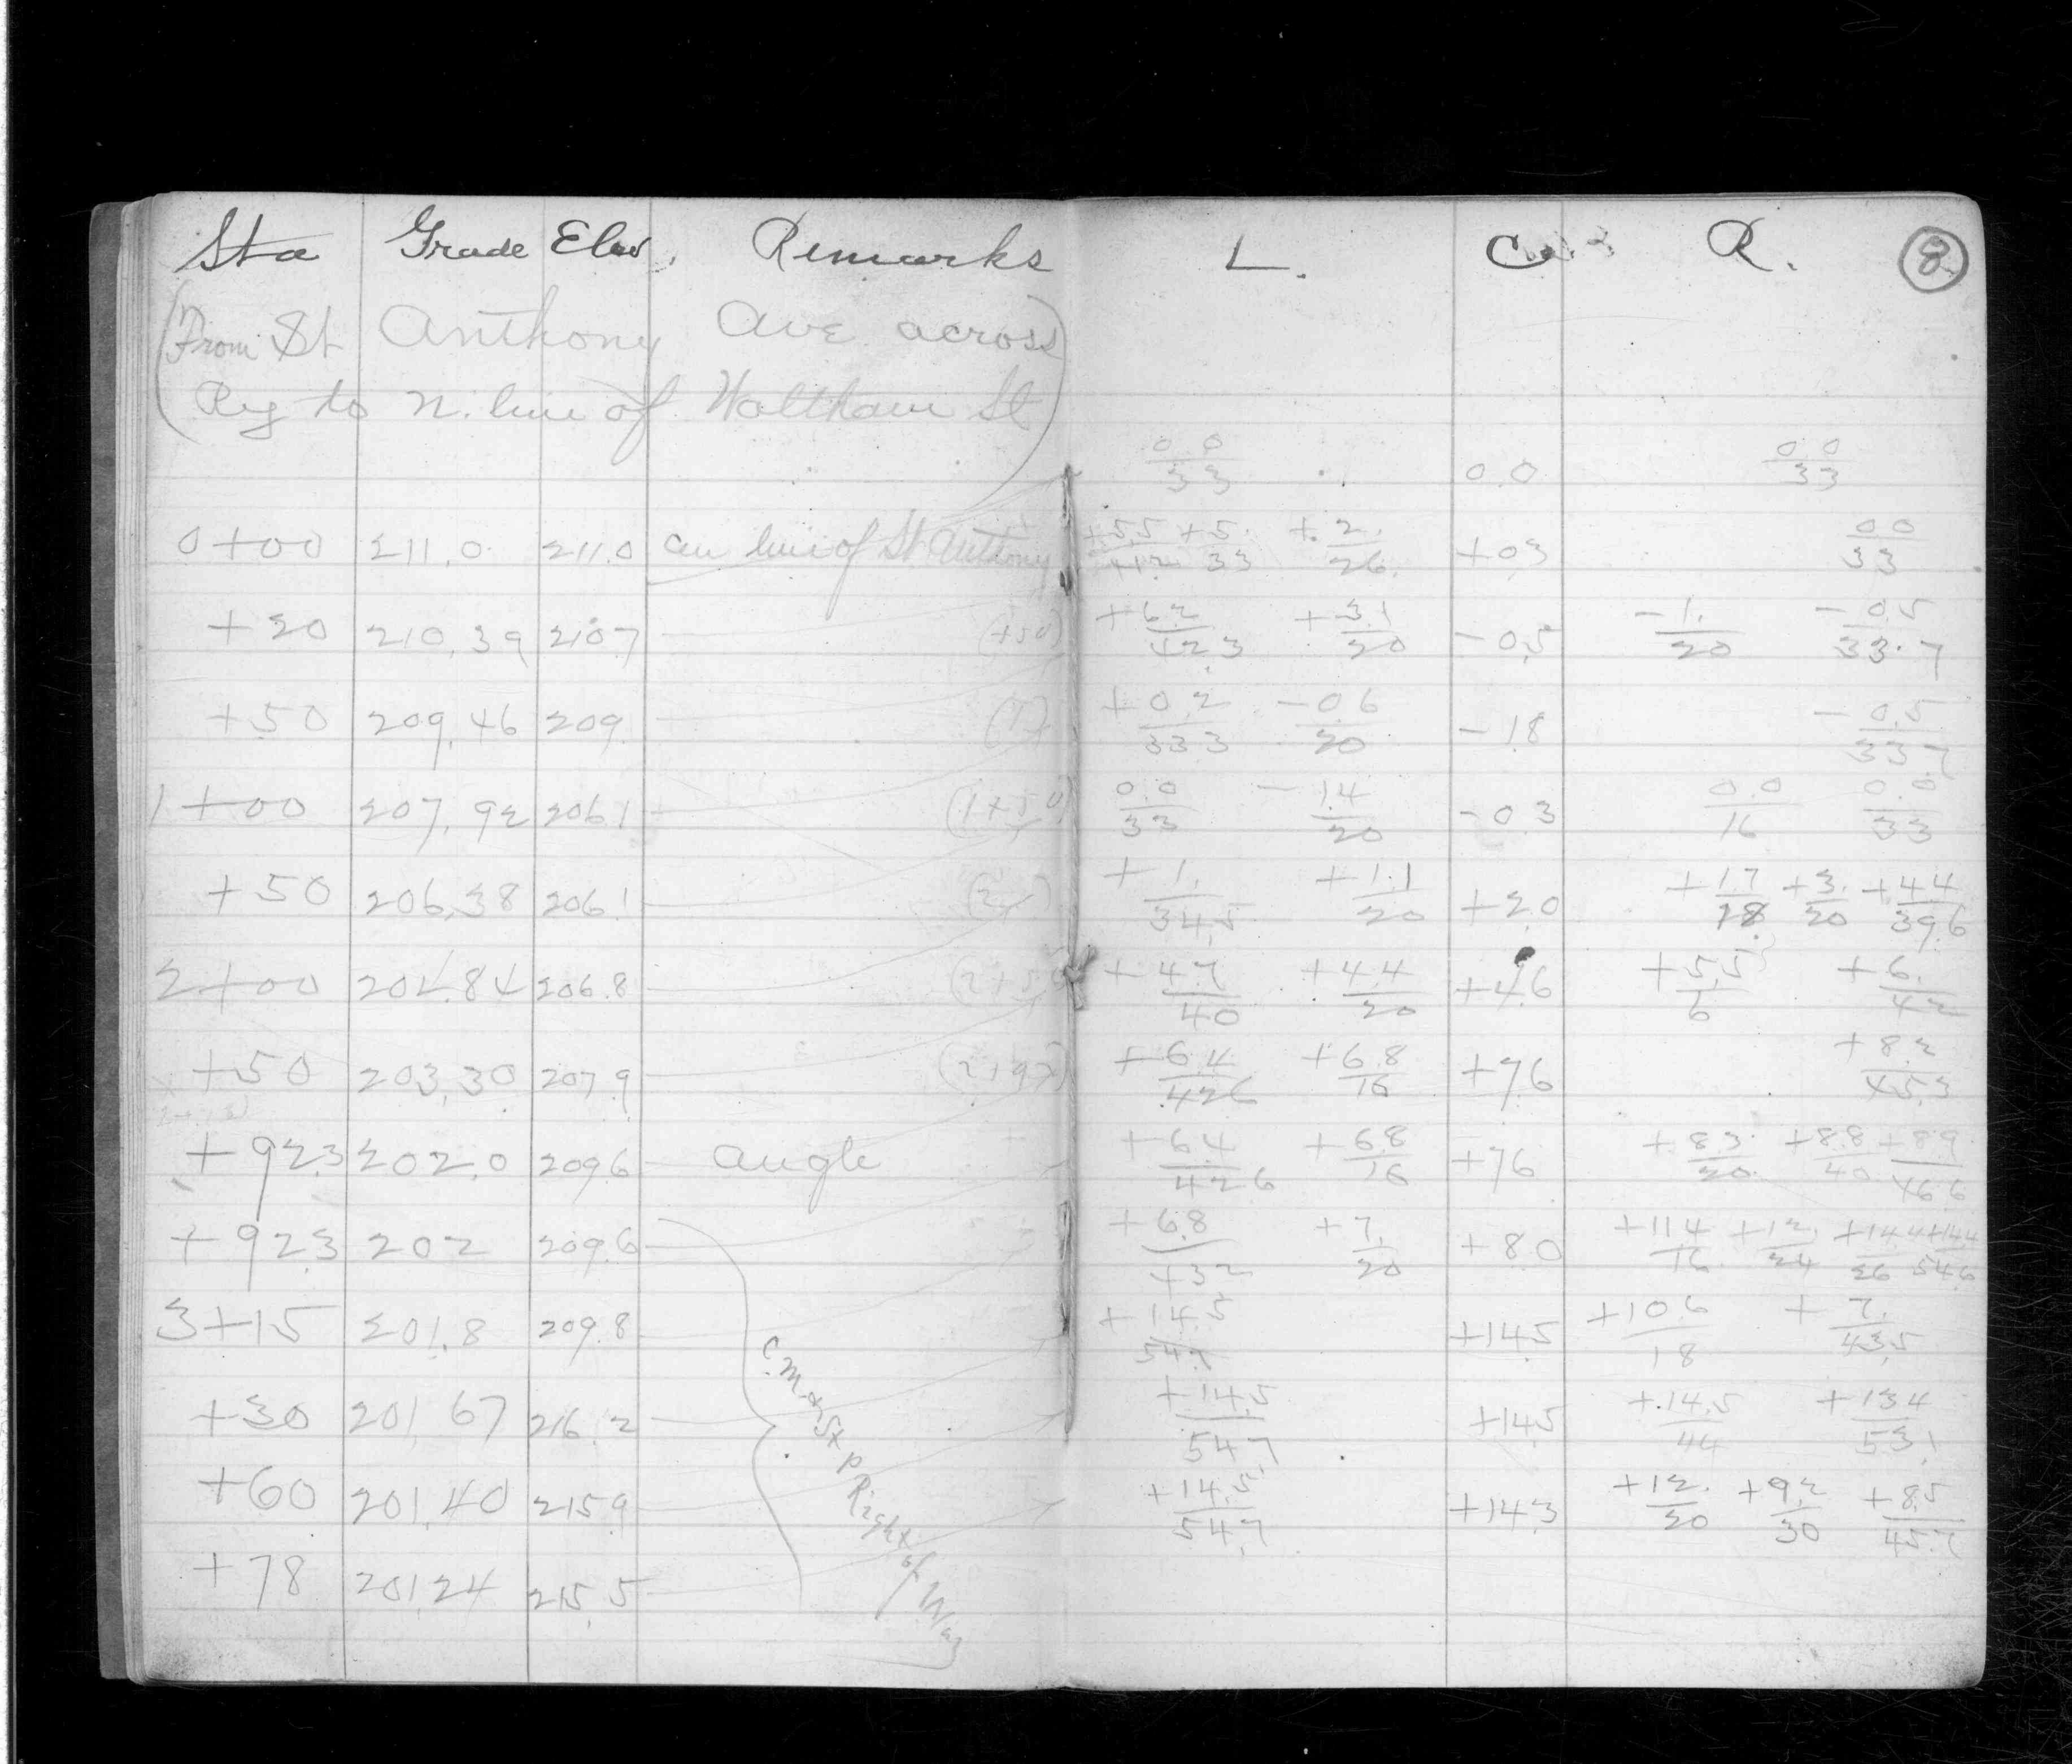 Sta Grade Elev. Remarks L. C R. 8
(From St Anthony Ave across
Ry to N. line of Waltham St)
0.0/33 0.0 0.0/33
0+00 211.0 211.0 line of St Anthony +5.5 +5./33 +2./26 +0.3 0.0/33
+20 210.39 210.7 (+50) +6.2/42.3 +3.1/20 -0.5 -1./20 -0.5/33.7
+50 209.46 209. (1) +0.2/33.3 -0.6/20 -1.8 -0.5/33.7
1+00 207.92 206.1 (1+50) 0.0/33 -1.4/20 -0.3 0.0/16 0.0/33
+50 206.38 206.1 (2) +1./34.5 +1.1/20 +2.0 +1.7/18 +3./20 +4.4/39.6
2+00 204.84 206.8 (2+50) +4.7/40 +4.4/20 +4.6 +5.5/6 +6./42
+50 203.30 207.9 (2+92) +6.4/42.6 +6.8/16 +7.6 +8.2/45.3
+92.3 202.0 209.6 angle +6.4/42.6 +6.8/16 +7.6 +8.3/20 +8.8/40 +8.9/46.6
+92.3 202 209.6 +6.8/43.2 +7./20 +8.0 +11.4/16 +12./24 +14.4/26 +14.4/54.6
3+15 201.8 209.8 +14.5/54.7 +14.5 +10.6/18 +7./43.5
+30 201.67 216.2 +14.5/54.7 +14.5 +14.5/44 +13.4/53.1
+60 201.40 215.9 +14.5/54.7 +14.3 +12./20 +9.2/30 +8.5/45.7
+78 201.24 215.5
C.M. & St P Right of Way